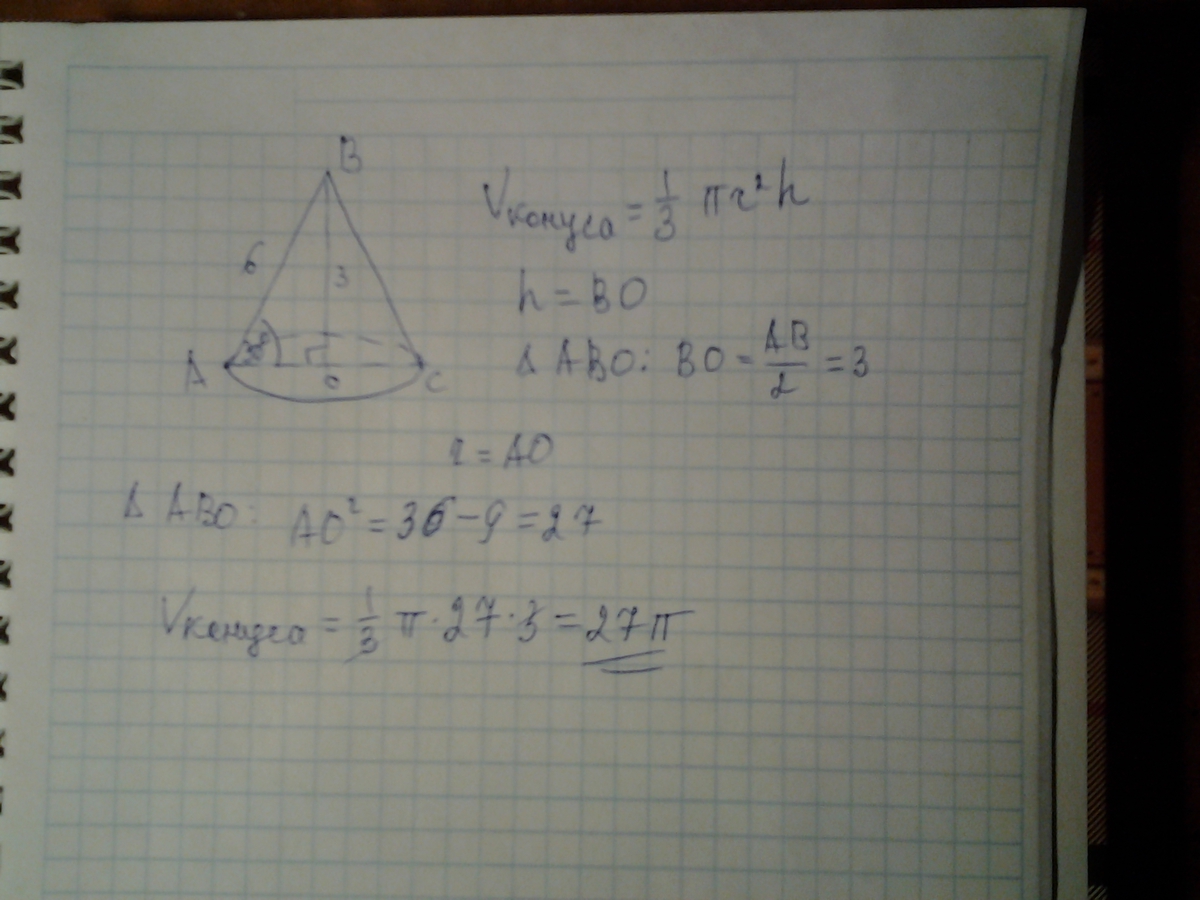 B
6
3
A
O
C
Vконуса = 1/3 πr²h
h = BO
Δ ABO: BO = AB/2 = 3
r = AO
Δ ABO: AO² = 36 - 9 = 27
Vконуса = 1/3 π · 27 · 3 = 27π